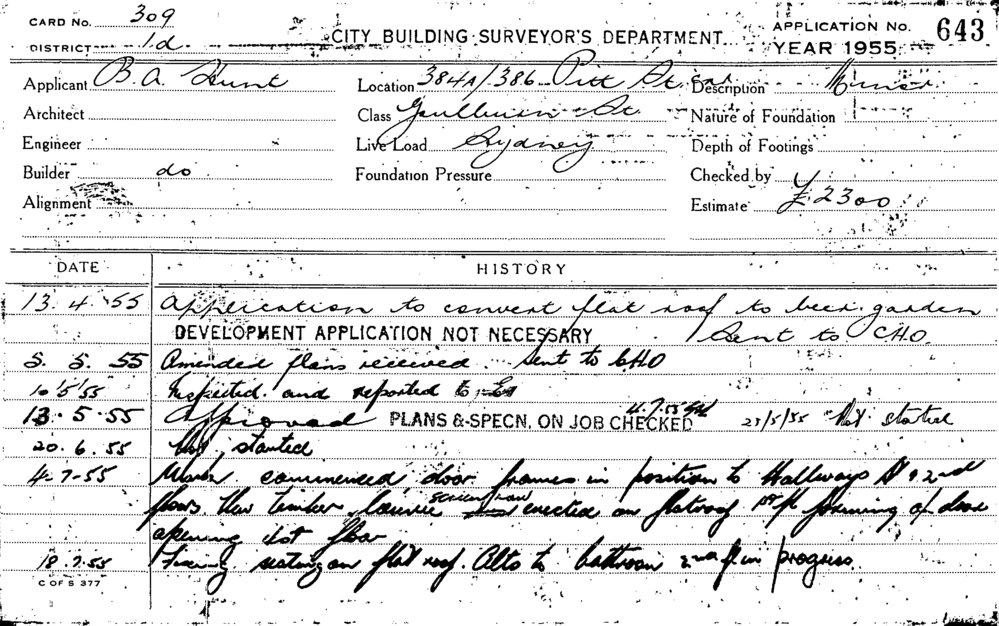 CARD No. 309
DISTRICT 1d.
CITY BUILDING SURVEYOR'S DEPARTMENT
APPLICATION No. 643
YEAR 1955
Applicant B. A. Hunt
Location 384A/386 Pitt St. car
Description Minor
Architect
Class Goulburn St.
Nature of Foundation
Engineer
Live Load Sydney
Depth of Footings
Builder do
Foundation Pressure
Checked by
Alignment
Estimate £2300
DATE HISTORY
13.4.55 Application to convert flat roof to beer garden
DEVELOPMENT APPLICATION NOT NECESSARY Sent to C.H.O.
5.5.55 Amended plans received. Sent to CHO
10/5/55 Inspected and reported to
13.5.55 Approved PLANS & SPECN. ON JOB CHECKED 4.7.55 23/5/55 Not started
20.6.55 Not started
4-7-55 Work commenced door frames in position to Hallways 1st & 2nd
floors New timber louvre screen now erected on flat roof 1st fl forming of door
opening 1st floor
18.7.55 Fixing seating on flat roof. Alts to bathroom 2nd fl in progress.
C OF S 377